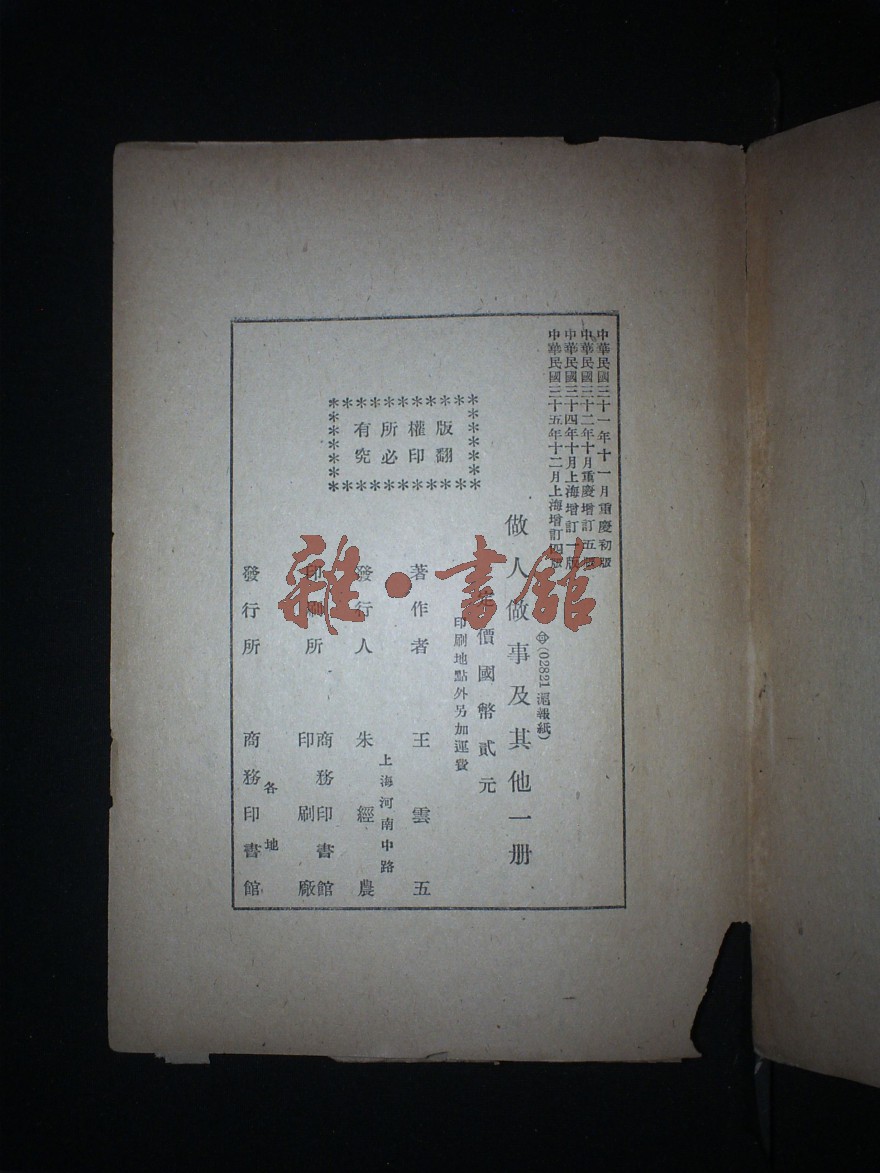 中華民國三十一年十一月重慶初版
中華民國三十二年十月重慶增訂五版
中華民國三十四年十月上海增訂一版
中華民國三十五年十二月上海增訂四版
(02821 滬報紙)
做人做事及其他一册
價國幣貳元
印刷地點外另加運費
版權所有
翻印必究
著作者 王雲五
上海河南中路
發行人 朱經農
印刷所 商務印書館印刷廠
發行所 各地商務印書館
雜·書館